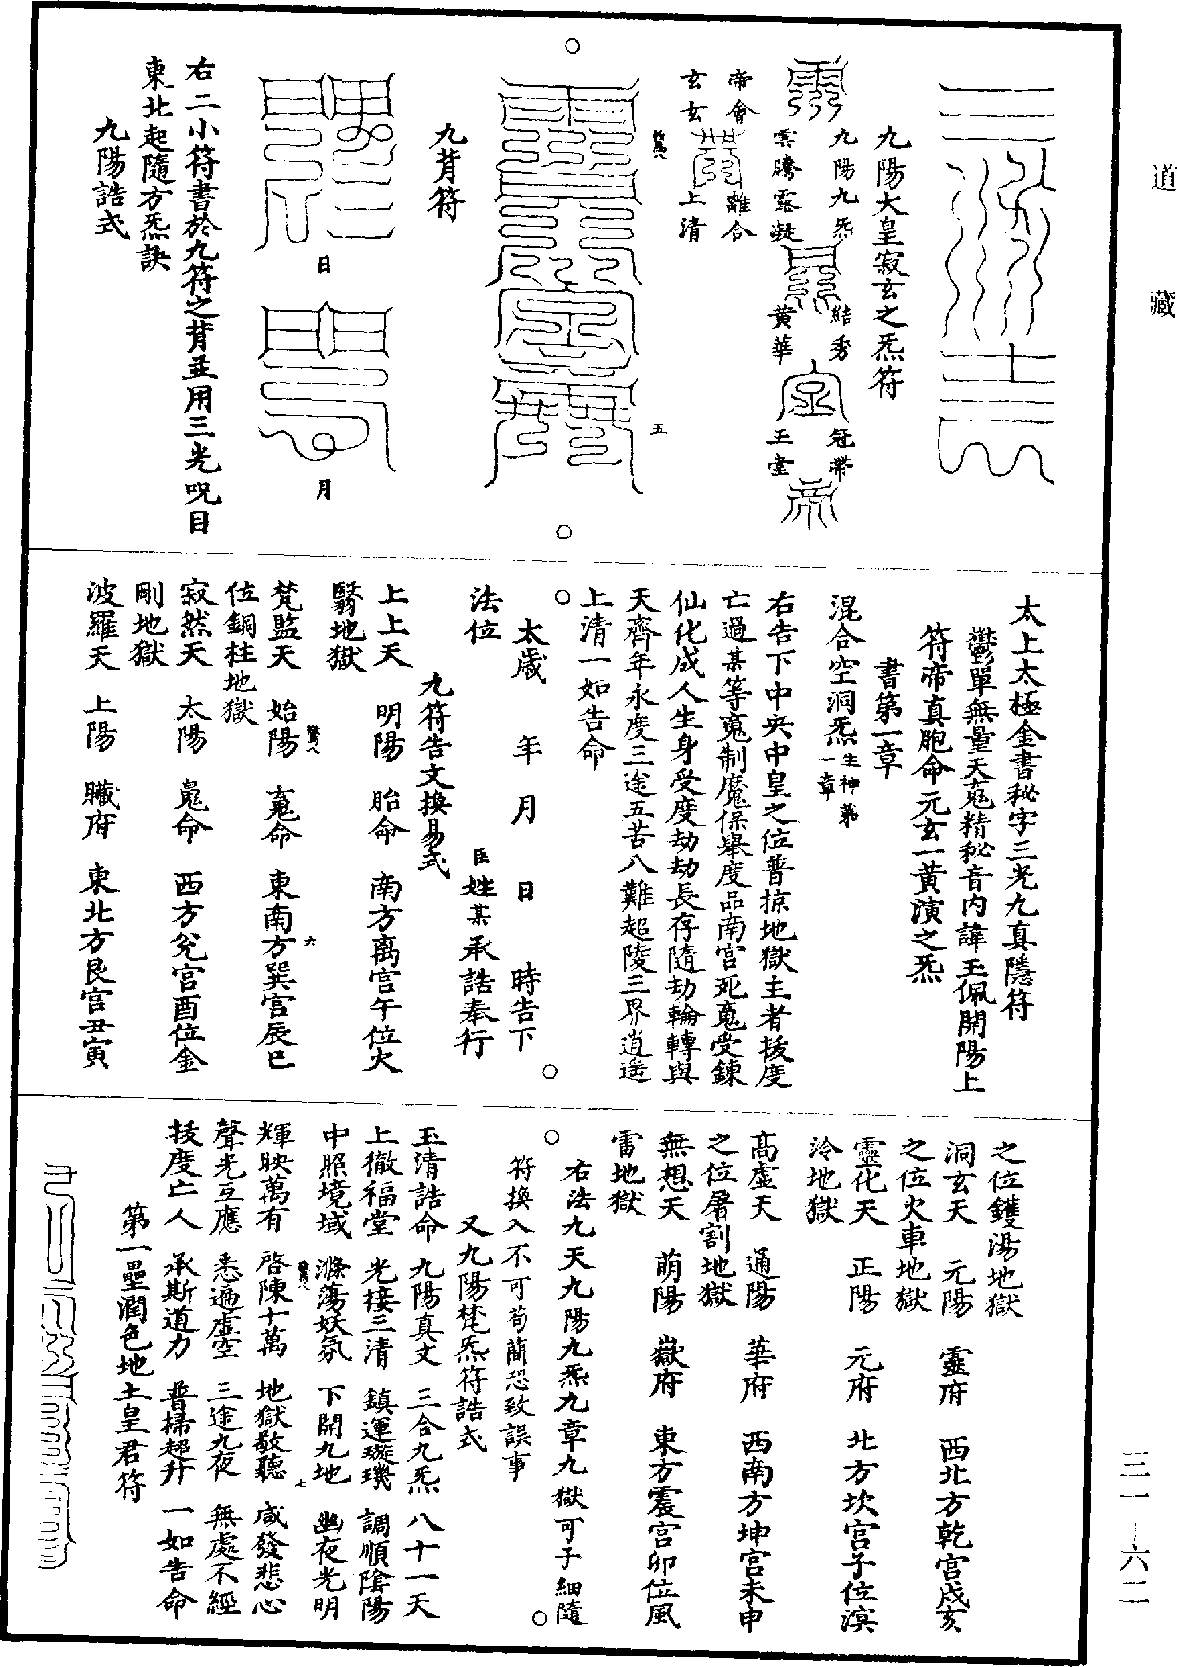 道藏
三一·六二
九陽大皇寂玄之炁符
九陽九炁
雲騰靈凝
結秀
黃華
冠帶
玉堂
帝會
玄玄
離合
上清
五
九背符
日
月
右二小符書於九符之背並用三光呪目
東北起隨方炁訣
九陽誥式
太上太極金書秘字三光九真隱符
鬱單無量天䰟精秘音內諱玉佩開陽上
符帝真胞命元玄一黃演之炁
書第一章
混合空洞炁生神第一章
右告下中央中皇之位普掠地獄主者拔度
亡過某等䰟制魔保舉度品南宮死䰟受鍊
仙化成人生身受度劫劫長存隨劫輪轉與
天齊年永度三途五苦八難超陵三界逍遙
上清一如告命
太歲 年 月 日 時告下
法位 臣姓某承誥奉行
九符告文換易式
上上天 明陽 胎命 南方离宮午位火
翳地獄
梵監天 始陽 䰟命 東南方巽宮辰巳
六
位銅柱地獄
寂然天 太陽 䰟命 西方兌宮酉位金
剛地獄
波羅天 上陽 臟府 東北方艮宮丑寅
之位鑊湯地獄
洞玄天 元陽 靈府 西北方乾宮戌亥
之位火車地獄
靈化天 正陽 元府 北方坎宮子位溟
泠地獄
高虛天 通陽 華府 西南方坤宮未申
之位屠割地獄
無想天 萌陽 嶽府 東方震宮卯位風
雷地獄
右法九天九陽九炁九章九獄可子細隨
符換入不可苟簡恐致誤事
又九陽梵炁符誥式
玉清誥命 九陽真文 三合九炁 八十一天
上徹福堂 光接三清 鎮運璇璣 調順陰陽
中照境域 滌蕩妖氛 下開九地 幽夜光明
七
輝映萬有 啓陳十萬 地獄敬聽 咸發悲心
聲光互應 悉遍虛空 三途九夜 無處不經
拔度亡人 承斯道力 普掃超升 一如告命
第一壘潤色地土皇君符